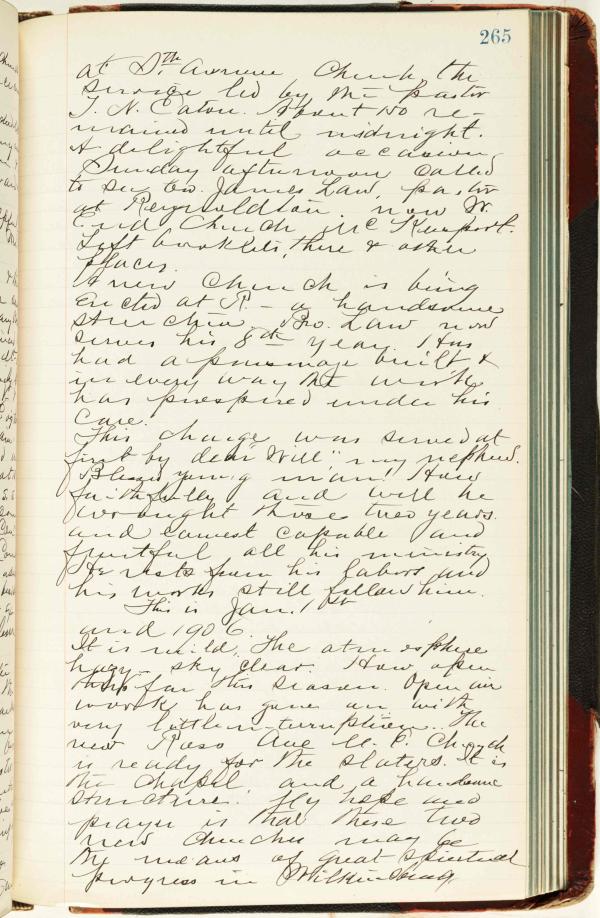 265
at 5th Avenue Church, the
service led by the pastor
T. N. Eaton. About 150 re-
mained until midnight.
A delightful occasion,
Sunday afternoon called
to see Bro. James Law, pastor
at Reynoldton, now W.
End Church, McKeesport.
Left booklets, there & other
places.
A new Church is being
erected at R. - a handsome
structure. Bro. Law now
serves his 8th year. Has
had a parsonage built &
in every way the work
has prospered under his
care.
This charge was served at
first by dear "Will", my nephew.
Blessed young man! How
faithfully and well he
wrought those two years.
and earnest capable and
fruitful all his ministry
He rests from his labors and
his works still follow him.
This is Jan. 1st
and 1906.
It is mild. The atmosphere
hazy - sky clear. How open
thus far this season. Open air
work has gone on with
very little interruption. The
new Ross Ave M. E. Church
is ready for the slaters. It is
the chapel, and a handsome
structure. My hope and
prayer is that these two
new churches may be
the means of great spiritual
progress in Wilkinsburg.